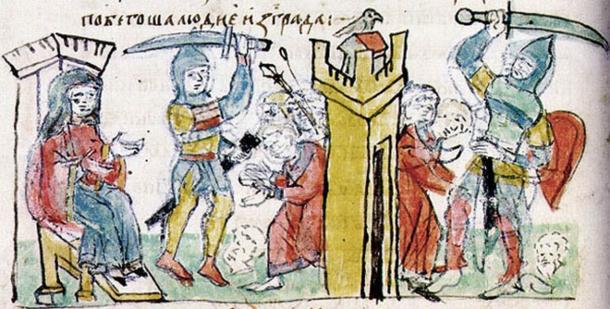 побегоша людие из града :